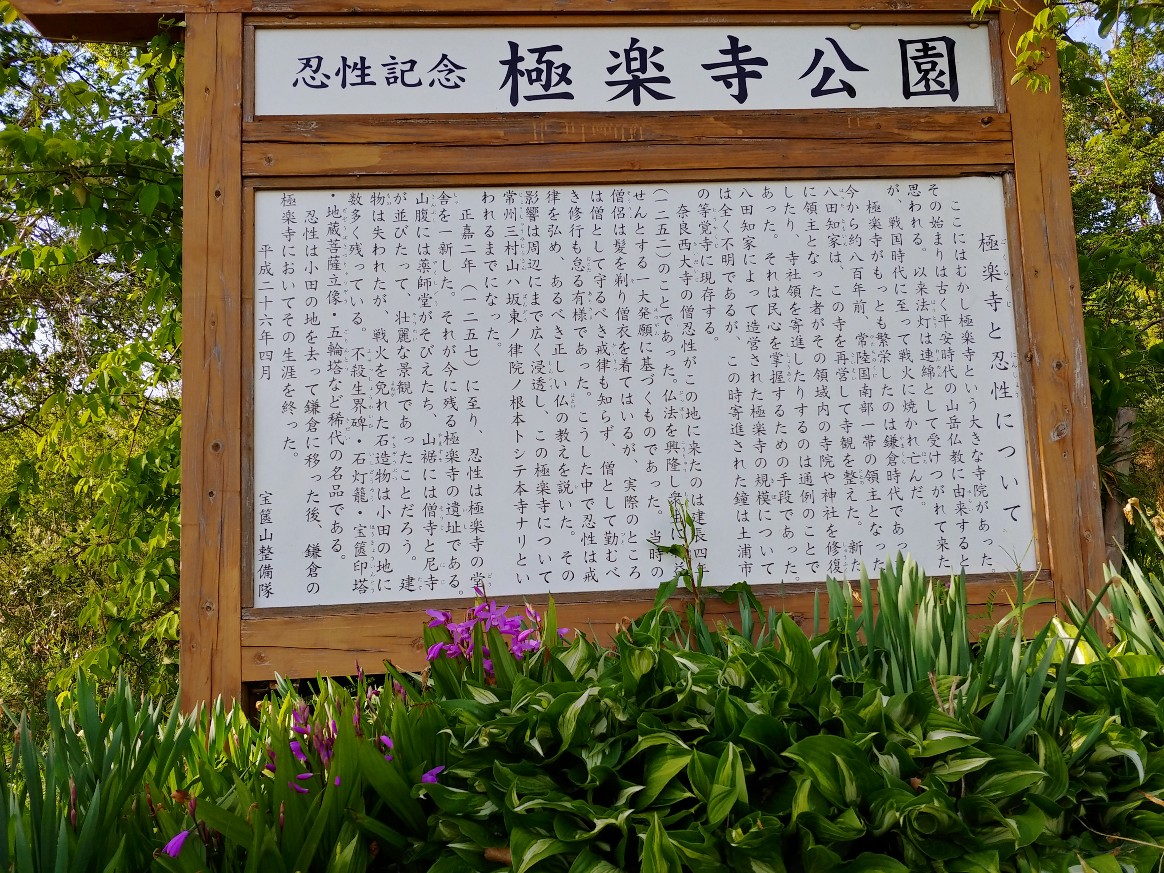 忍性記念 極楽寺公園
極楽寺と忍性について
ここにはむかし極楽寺という大きな寺院があった。
その始まりは古く平安時代の山岳仏教に由来すると
思われる。以来法灯は連綿として受けつがれて来た
が、戦国時代に至って戦火に焼かれ亡んだ。
極楽寺がもっとも繁栄したのは鎌倉時代であっ
今から約八百年前、常陸国南部一帯の領主となっ
八田知家は、この寺を再営して寺観を整えた。新た
に領主となった者がその領域内の寺院や神社を修復
したり、寺社領を寄進したりするのは通例のことで
あった。それは民心を掌握するための手段であった。
八田知家によって造営された極楽寺の規模について
は全く不明であるが、この時寄進された鐘は土浦市
の等覚寺に現存する。
奈良西大寺の僧忍性がこの地に来たのは建長四年
(一二五二)のことであった。仏法を興隆し衆生
せんとする一大発願に基づくものであった。当時の
僧侶は髪を剃り僧衣を着てはいるが、実際のところ
は僧として守るべき戒律も知らず、僧として勤むべ
き修行も怠る有様であった。こうした中で忍性は戒
律を弘め、あるべき正しい仏の教えを説いた。その
影響は周辺にまで広く浸透し、この極楽寺について
常州三村山ハ坂東ノ律院ノ根本トシテ本寺ナリとい
われるまでになった。
正嘉二年(一二五七)に至り、忍性は極楽寺の堂
舎を一新した。それが今に残る極楽寺の遺址である。
山腹には薬師堂がそびえたち、山裾には僧寺と尼寺
が並びたって、壮麗な景観であったことだろう。建
物は失われたが、戦火を免れた石造物は小田の地に
数多く残っている。不殺生界碑・石灯籠・宝篋印塔
・地蔵菩薩立像・五輪塔など稀代の名品である。
忍性は小田の地を去って鎌倉に移った後、鎌倉の
極楽寺においてその生涯を終った。
平成二十六年四月 宝篋山整備隊